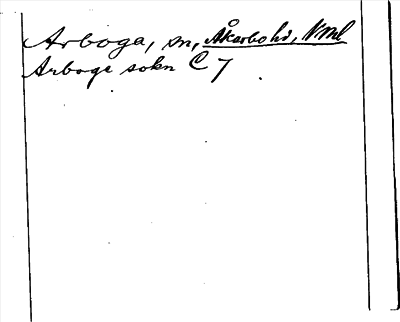 Arboga, sn, Åkerbo hd, Vml
Arboga sokn C 7